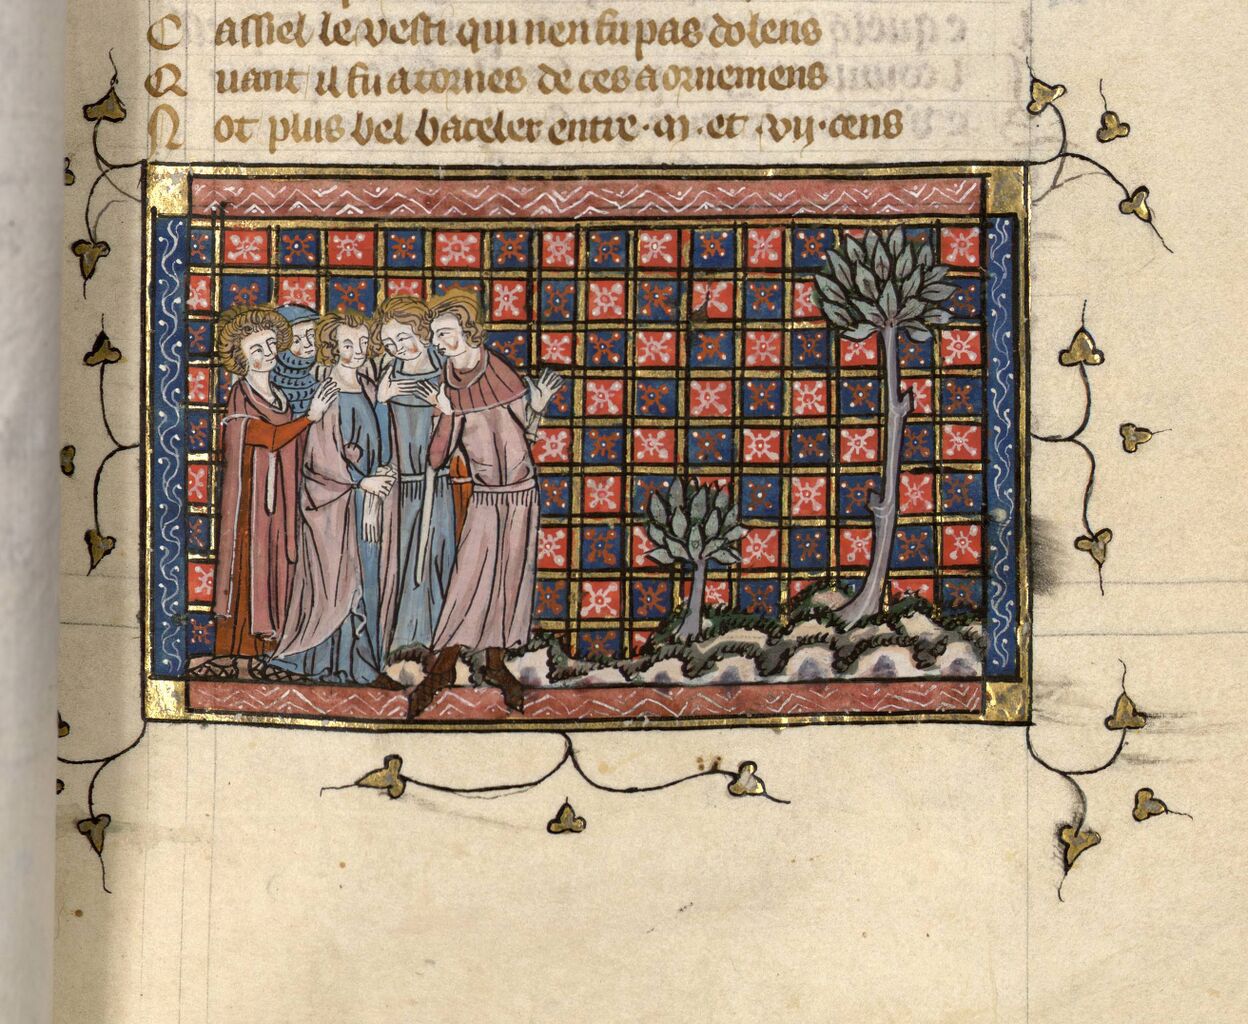 C assiel le vesti qui nen fu pas dolens
Q uant il fu atornes de ces aornemens
N ot plus bel baceler entre .m. et .vij. cens